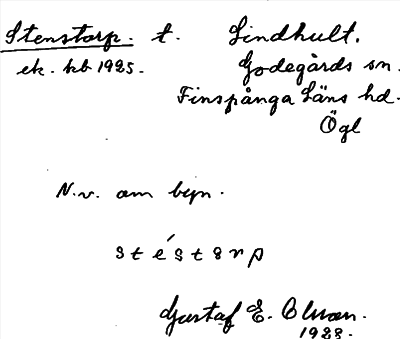 Stenstorp. t. Lindhult.
ek. kb 1925. Godegårds sn.
Finspånga Läns hd.
Ögl
N.v. om byn.
Gustaf E. Olman.
1928.